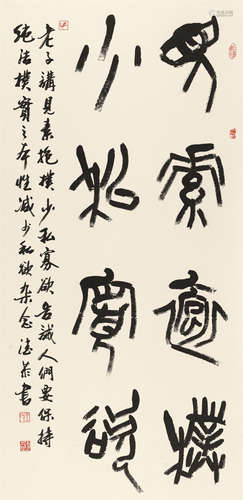 見素抱樸
少私寡欲
老子講見素抱樸少私寡欲告誡人們要保持
純潔樸實之本性減少私欲雜念 德恭書